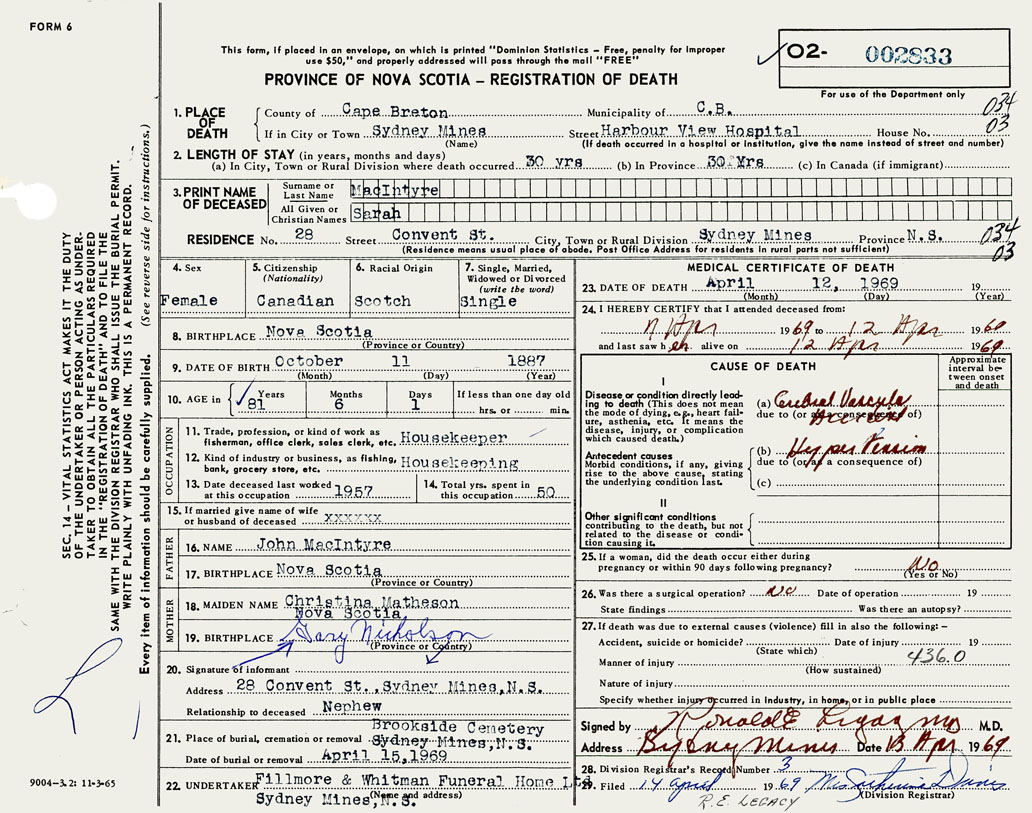 FORM 6
This form, if placed in an envelope, on which is printed "Dominion Statistics – Free, penalty for improper
use $50," and properly addressed will pass through the mail "FREE"
PROVINCE OF NOVA SCOTIA – REGISTRATION OF DEATH
02- 002833
For use of the Department only
034
03
1. PLACE OF DEATH County of Cape Breton Municipality of C.B.
If in City or Town Sydney Mines Street Harbour View Hospital House No.
(Name) (If death occurred in a hospital or institution, give the name instead of street and number)
2. LENGTH OF STAY (in years, months and days)
(a) In City, Town or Rural Division where death occurred 30 yrs (b) In Province 30 Yrs (c) In Canada (if immigrant)
3. PRINT NAME OF DECEASED Surname or Last Name MacIntyre
All Given or Christian Names Sarah
RESIDENCE No. 28 Street Convent St. City, Town or Rural Division Sydney Mines Province N.S. 034
(Residence means usual place of abode. Post Office Address for residents in rural parts not sufficient) 03
4. Sex
Female
5. Citizenship
(Nationality)
Canadian
6. Racial Origin
Scotch
7. Single, Married,
Widowed or Divorced
(write the word)
Single
8. BIRTHPLACE Nova Scotia
(Province or Country)
9. DATE OF BIRTH October 11 1887
(Month) (Day) (Year)
10. AGE in Years Months Days If less than one day old
81 6 1 hrs. or min.
OCCUPATION
11. Trade, profession, or kind of work as
fisherman, office clerk, sales clerk, etc. Housekeeper
12. Kind of industry or business, as fishing,
bank, grocery store, etc. Housekeeping
13. Date deceased last worked
at this occupation 1957
14. Total yrs. spent in
this occupation 50
15. If married give name of wife
or husband of deceased xxxxxx
FATHER
16. NAME John MacIntyre
17. BIRTHPLACE Nova Scotia
(Province or Country)
MOTHER
18. MAIDEN NAME Christina Matheson
Nova Scotia
19. BIRTHPLACE Gary Nicholson
(Province or Country)
20. Signature of informant
Address 28 Convent St., Sydney Mines, N.S.
Relationship to deceased Nephew
21. Place of burial, cremation or removal Brookside Cemetery
Sydney Mines, N.S.
Date of burial or removal April 15, 1969
22. UNDERTAKER Fillmore & Whitman Funeral Home Ltd
(Name and address)
Sydney Mines, N.S.
MEDICAL CERTIFICATE OF DEATH
23. DATE OF DEATH April 12, 1969 19
(Month) (Day) (Year)
24. I HEREBY CERTIFY that I attended deceased from:
Apr 1969 to 12 Apr 1969
and last saw her alive on 12 Apr 1969
CAUSE OF DEATH
Approximate
interval be-
tween onset
and death
I
Disease or condition directly lead-
ing to death (This does not mean
the mode of dying, e.g., heart fail-
ure, asthenia, etc. It means the
disease, injury, or complication
which caused death.)
(a) Cerebral Vascular
Accident
due to (or as a consequence of)
Antecedent causes
Morbid conditions, if any, giving
rise to the above cause, stating
the underlying condition last.
(b) Hypertension
due to (or as a consequence of)
(c)
II
Other significant conditions
contributing to the death, but not
related to the disease or condi-
tion causing it.
25. If a woman, did the death occur either during
pregnancy or within 90 days following pregnancy? No
(Yes or No)
26. Was there a surgical operation? No Date of operation 19
State findings Was there an autopsy?
27. If death was due to external causes (violence) fill in also the following: –
Accident, suicide or homicide? Date of injury 19
(State which)
Manner of injury 436.0
(How sustained)
Nature of injury
Specify whether injury occurred in industry, in home, or in public place
Signed by M.D.
Address Sydney Mines Date 13 Apr 1969
28. Division Registrar's Record Number 3
29. Filed 14 april 1969
(Division Registrar)
R.E. LEGACY
SEC. 14 – VITAL STATISTICS ACT MAKES IT THE DUTY
OF THE UNDERTAKER OR PERSON ACTING AS UNDER-
TAKER TO OBTAIN ALL THE PARTICULARS REQUIRED
IN THE "REGISTRATION OF DEATH" AND TO FILE THE
SAME WITH THE DIVISION REGISTRAR WHO SHALL ISSUE THE BURIAL PERMIT.
WRITE PLAINLY WITH UNFADING INK. THIS IS A PERMANENT RECORD.
Every item of information should be carefully supplied. (See reverse side for instructions.)
9004–3.2: 11-3-65